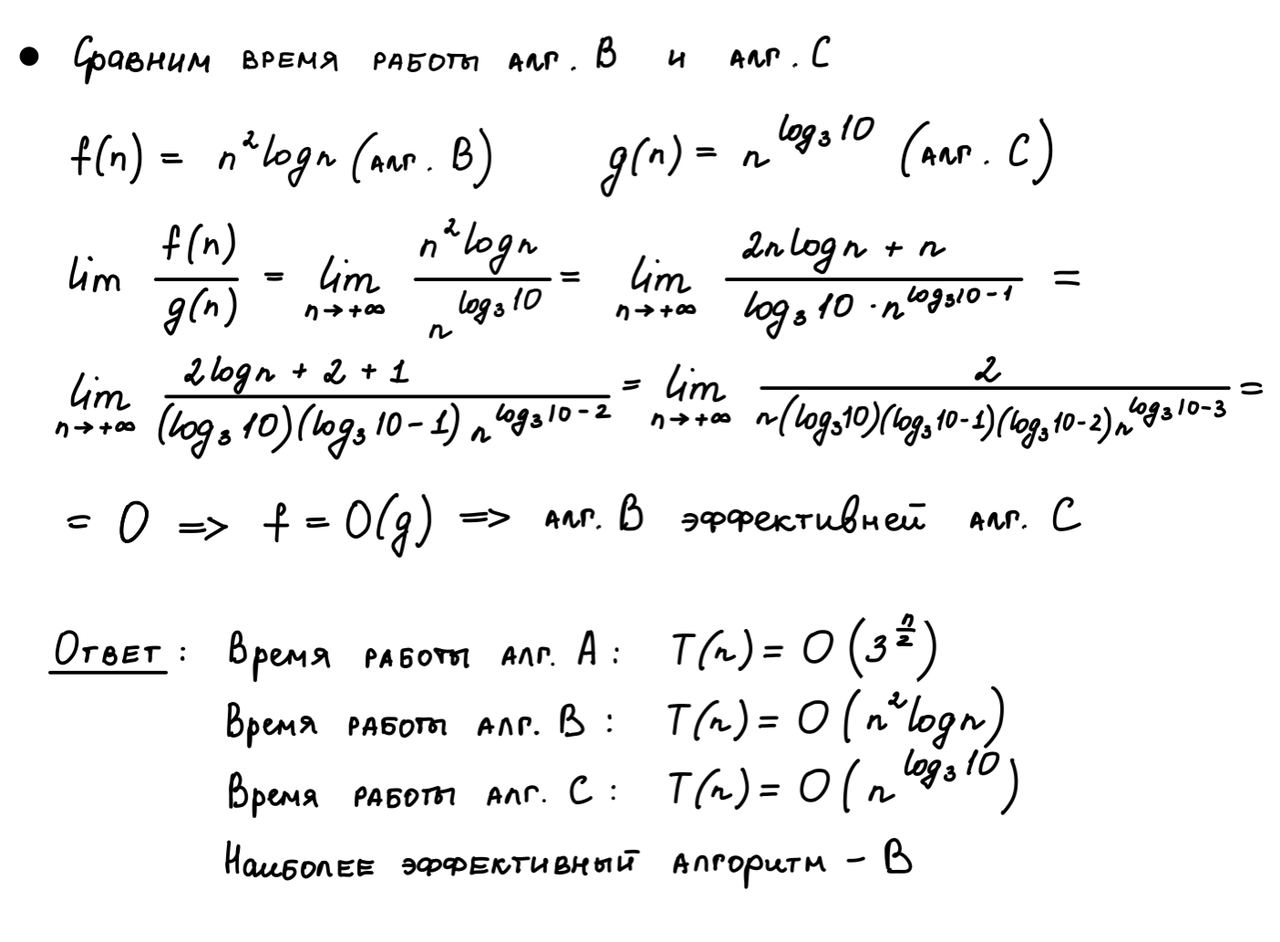 • Сравним время работы алг. B и алг. C
f(n) = n² log n (алг. B) g(n) = n^{log₃10} (алг. C)
lim f(n)/g(n) = lim_{n→+∞} n² log n / n^{log₃10} = lim_{n→+∞} (2n log n + n) / (log₃10 · n^{log₃10-1}) =
lim_{n→+∞} (2 log n + 2 + 1) / ((log₃10)(log₃10-1) n^{log₃10-2}) = lim_{n→+∞} 2 / (n(log₃10)(log₃10-1)(log₃10-2) n^{log₃10-3}) =
= 0 => f = O(g) => алг. B эффективней алг. C
Ответ: Время работы алг. A: T(n) = O(3^{n/2})
Время работы алг. B: T(n) = O(n² log n)
Время работы алг. C: T(n) = O(n^{log₃10})
Наиболее эффективный алгоритм – B